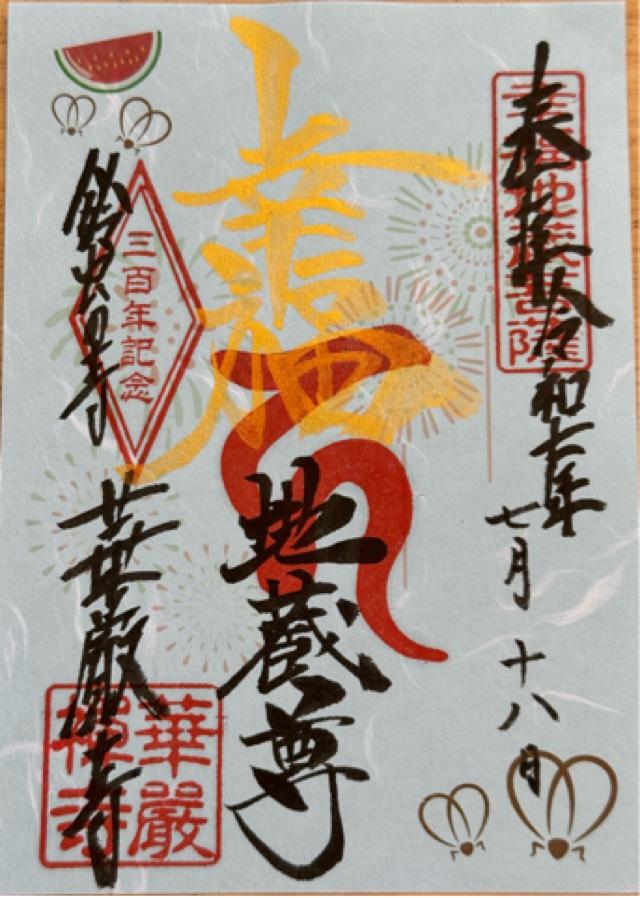 奉拝 令和七年
七月十八日
幸福地蔵菩薩
幸福
地蔵尊
三百年記念
鈴虫の寺
華厳寺
華嚴
禪寺